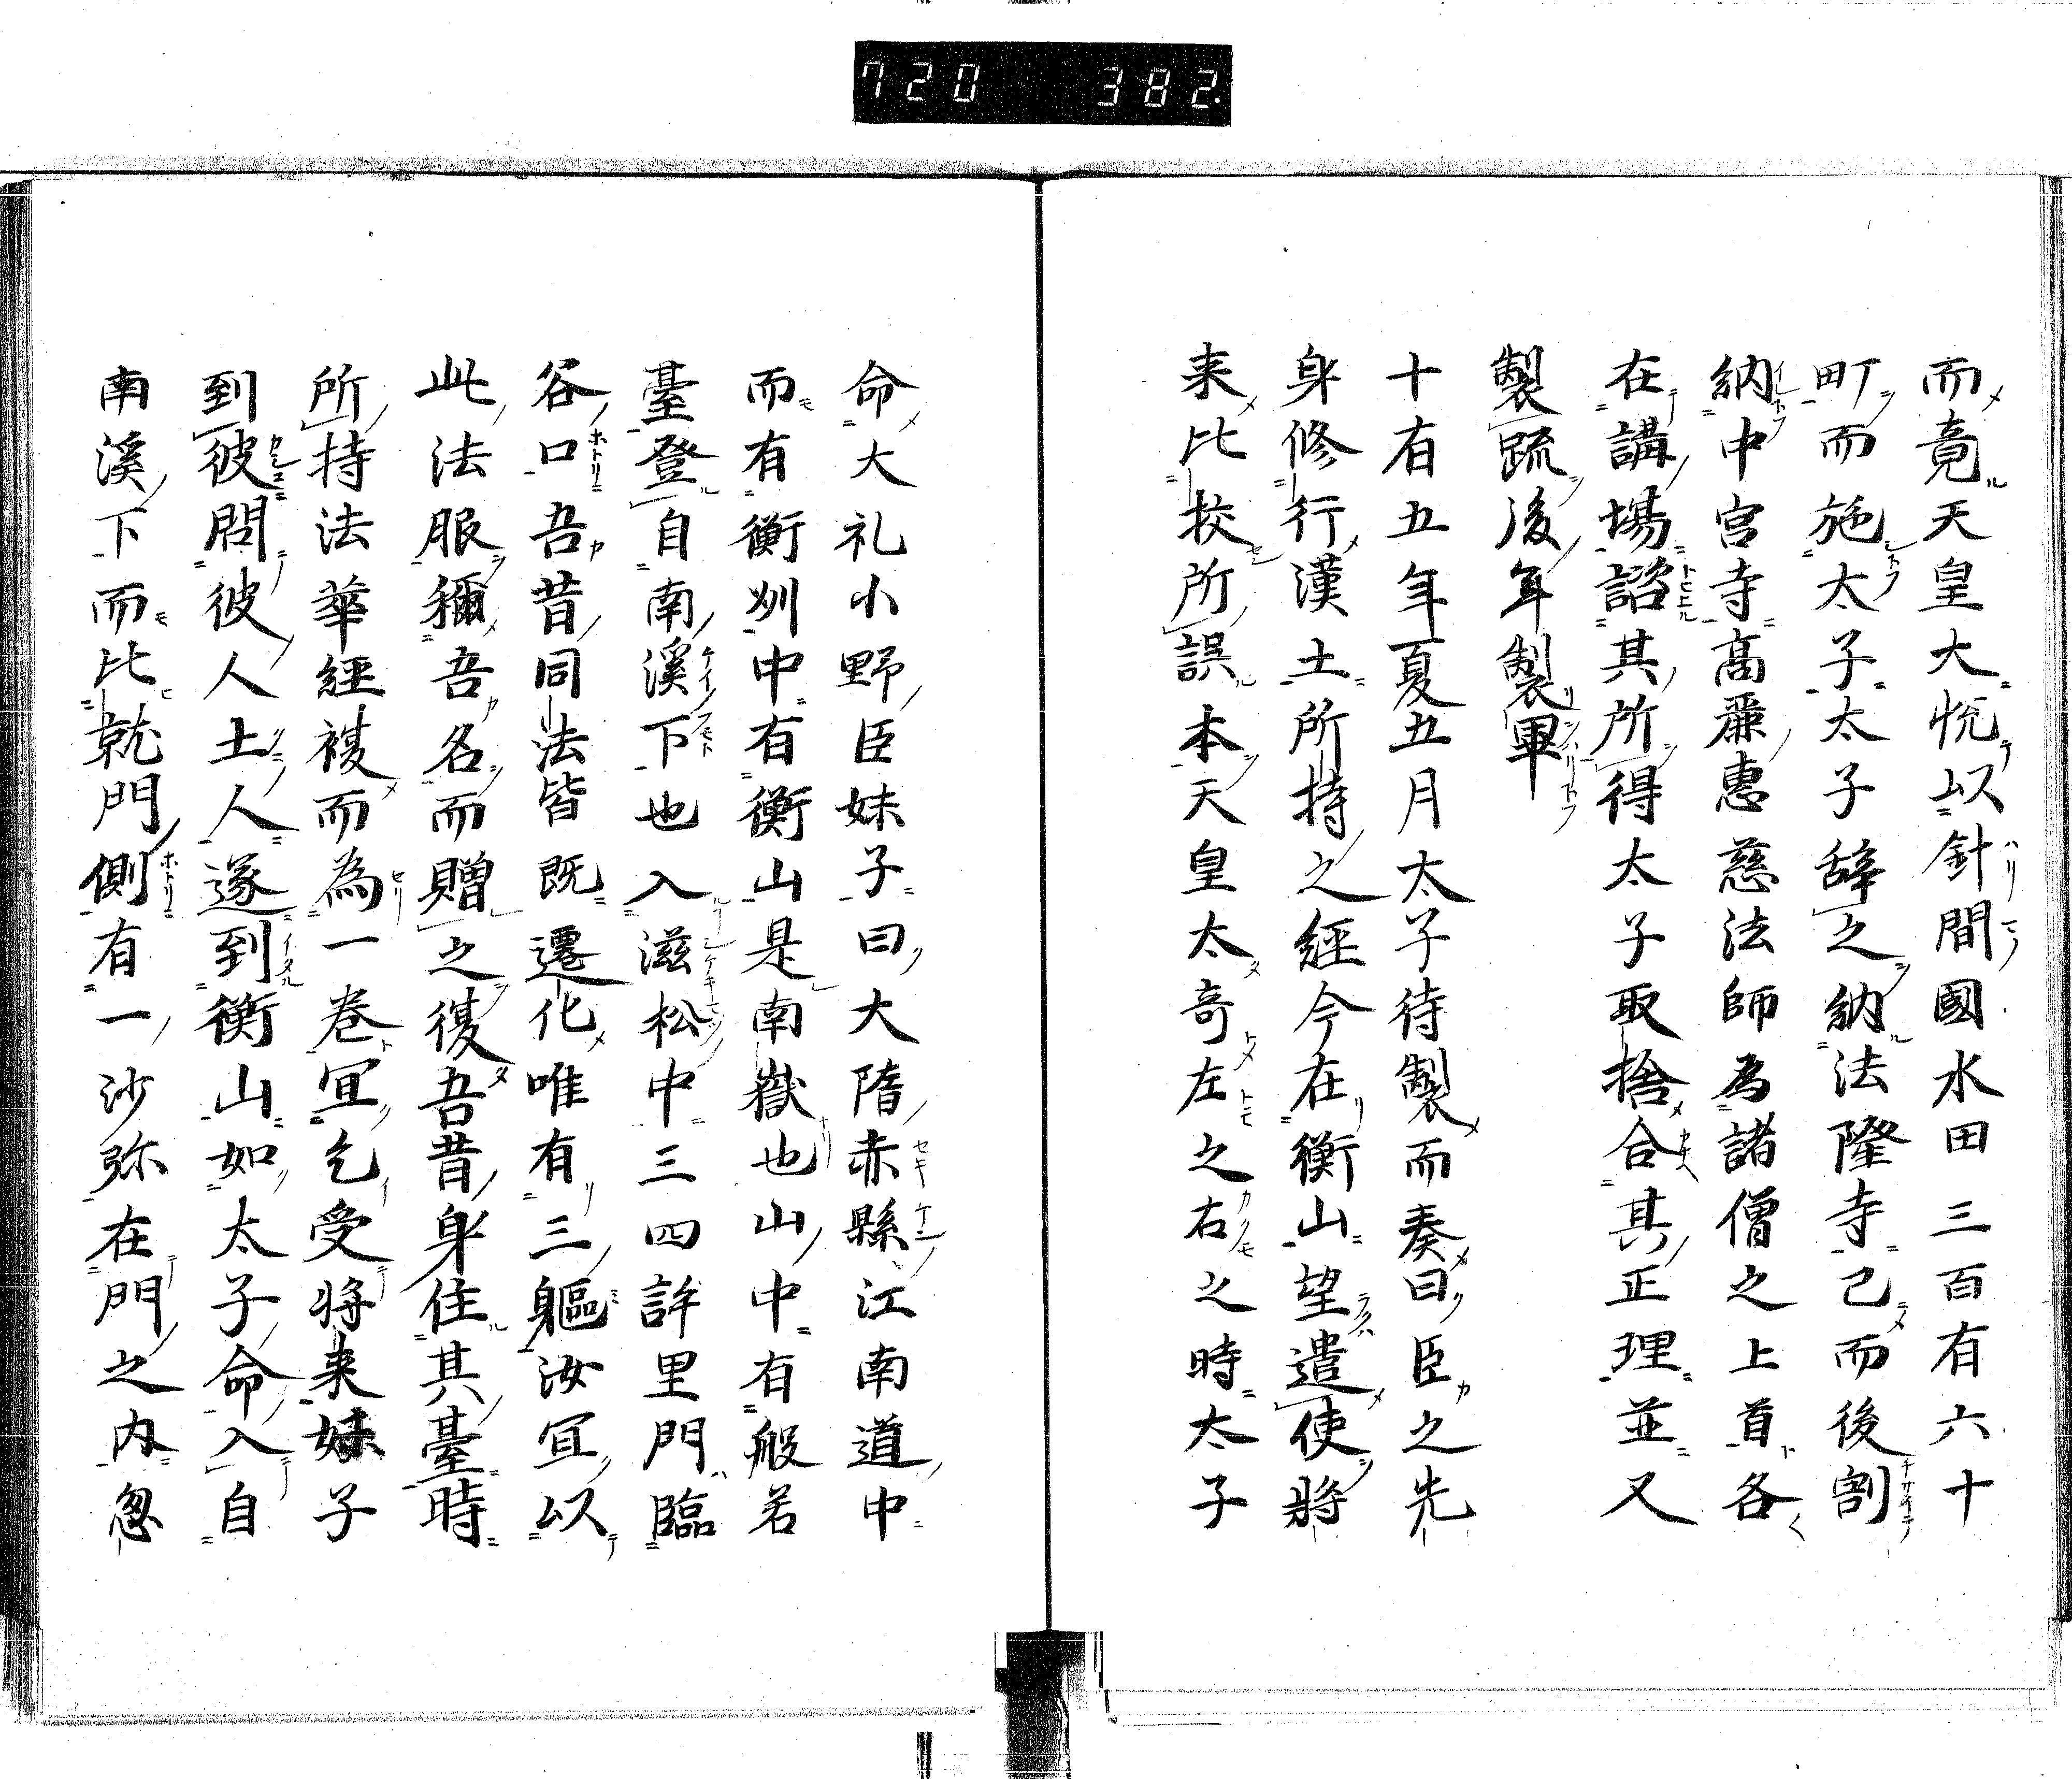 720 382.
而竟天皇大悦以針間國水田三百有六十
町而施太子太子辞之納法隆寺已而後割
納中宮寺高麗惠慈法師為諸僧之上首各
在講場諮其所得太子取捨合其正理並又
製疏後年製畢
十有五年夏五月太子待製而奏曰臣之先
身修行漢土所持之經今在衡山望遣使將
来比挍所誤本天皇太奇左之右之時太子
命大礼小野臣妹子曰大隋赤縣江南道中
而有衡州中有衡山是南嶽也山中有般若
臺登自南溪下也入滋松中三四許里門臨
谷口吾昔同法皆既遷化唯有三軀汝宜以
此法服稱吾名而贈之復吾昔身住其臺時
所持法華經複而為一巻宜乞受将来妹子
到彼問彼人土人遂到衡山如太子命入自
南溪下而比就門側有一沙弥在門之内忽